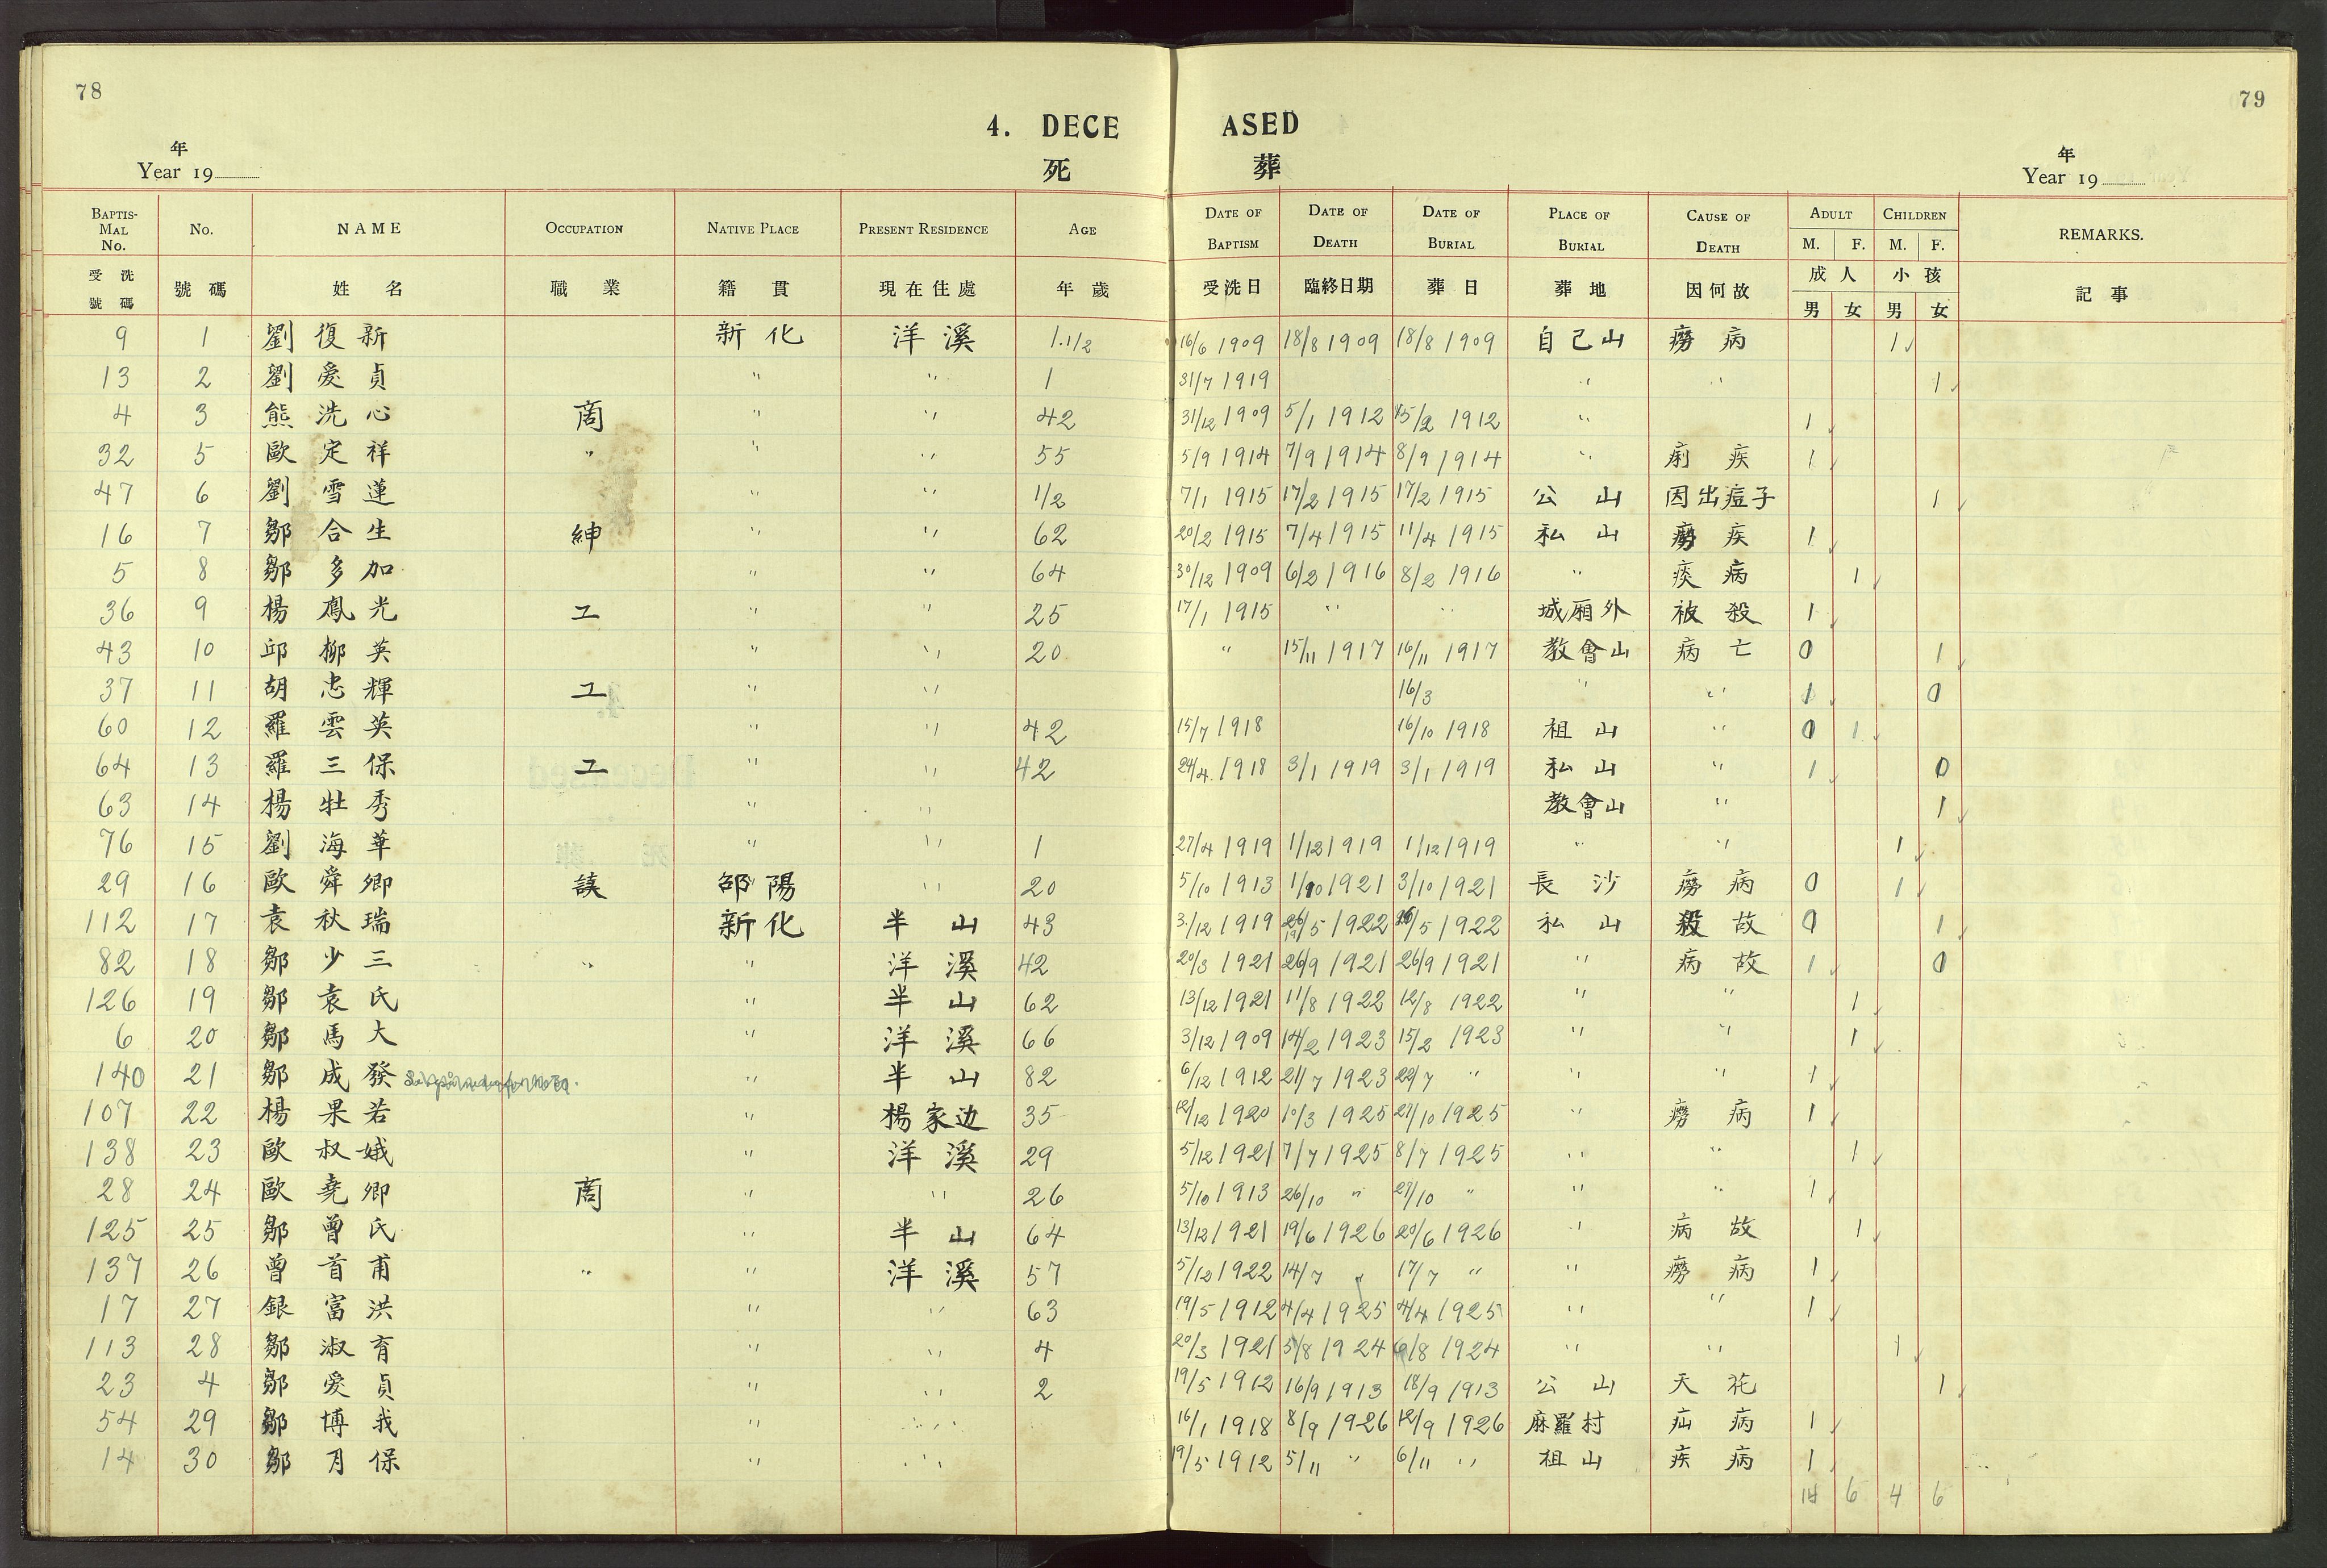 78
79
4. DECEASED
死 葬
年
Year 19
年
Year 19
BAPTISMAL No. No. NAME OCCUPATION NATIVE PLACE PRESENT RESIDENCE AGE DATE OF BAPTISM DATE OF DEATH DATE OF BURIAL PLACE OF BURIAL CAUSE OF DEATH ADULT M. F. CHILDREN M. F. REMARKS.
受洗號碼 號碼 姓名 職業 籍貫 現在住處 年歲 受洗日 臨終日期 葬日 葬地 因何故 成人 男 女 小孩 男 女 記事
9 1 劉復新 新化 洋溪 1.1/2 16/6 1909 18/8 1909 18/8 1909 自己山 癆病 1
13 2 劉爱貞 " " 1 31/7 1919 " " 1
4 3 熊洗心 商 " " 42 31/12 1909 5/1 1912 15/2 1912 " 1
32 5 歐定祥 " " " 55 5/9 1914 7/9 1914 8/9 1914 " 痢疾 1
47 6 劉雪蓮 " " 1/2 7/1 1915 17/2 1915 17/2 1915 公山 因出痘子 1
16 7 鄒合生 紳 " " 62 20/2 1915 7/4 1915 11/4 1915 私山 癆疾 1
5 8 鄒多加 " " 64 30/12 1909 6/2 1916 8/2 1916 " 痰病 1
36 9 楊鳳光 工 " " 25 17/1 1915 " " 城廂外 被殺 1
43 10 邱柳英 " " 20 " 15/11 1917 16/11 1917 教會山 病亡 0 1
37 11 胡忠輝 工 " " 16/3 " " 1 0
60 12 羅雲英 " " 42 15/7 1918 16/10 1918 祖山 " 0 1
64 13 羅三保 工 " " 42 24/4 1918 3/1 1919 3/1 1919 私山 " 1 0
63 14 楊牡秀 " " 教會山 " 1
76 15 劉海華 " " 1 27/4 1919 1/12 1919 1/12 1919 " " 1
29 16 歐舜卿 讀 邵陽 " 20 5/10 1913 1/10 1921 3/10 1921 長沙 癆病 0 1
112 17 袁秋瑞 新化 半山 43 3/12 1919 26/5 1922 26/5 1922 私山 殺故 0 1
82 18 鄒少三 " " 洋溪 42 20/3 1921 26/9 1921 26/9 1921 " 病故 1 0
126 19 鄒袁氏 " 半山 62 13/12 1921 11/8 1922 12/8 1922 " " 1
6 20 鄒馬大 " 洋溪 66 3/12 1909 14/2 1923 15/2 1923 " " 1
140 21 鄒成發 " 半山 82 6/12 1912 21/7 1923 22/7 " " " 1
107 22 楊果若 " 楊家边 35 12/12 1920 10/3 1925 27/10 1925 " 癆病 1
138 23 歐叔娥 " 洋溪 29 5/12 1921 7/7 1925 8/7 1925 " " 1
28 24 歐堯卿 商 " " 26 5/10 1913 26/10 " 27/10 " " " 1
125 25 鄒曾氏 " 半山 64 13/12 1921 19/6 1926 20/6 1926 " 病故 1
137 26 曾首甫 " " 洋溪 57 5/12 1922 14/7 " 17/7 " " 癆病 1
17 27 銀富洪 " " 63 19/5 1912 4/4 1925 4/4 1925 " " 1
113 28 鄒淑育 " " 4 20/3 1921 5/8 1924 6/8 1924 " " 1
23 4 鄒爱貞 " " 2 19/5 1912 16/9 1913 18/9 1913 公山 天花 1
54 29 鄒博我 " " 16/1 1918 8/9 1926 12/9 1926 麻羅村 疝病 1
14 30 鄒月保 " " 19/5 1912 5/11 " 6/11 " 祖山 疾病 1
14 6 4 6